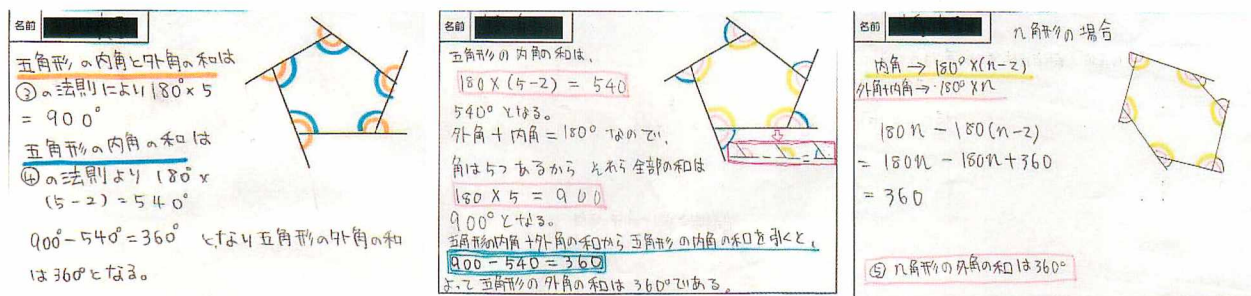 名前
五角形の内角と外角の和は
③の法則により180°×5
= 900°
五角形の内角の和は
④の法則より 180°×
(5-2)=540°
900°-540°=360° となり五角形の外角の和
は360°となる。
名前
五角形の内角の和は、
180×(5-2) = 540
540°となる。
外角+内角=180°なので、
角は5つあるから それら全部の和は
180×5=900
900°となる。
五角形の内角+外角の和から五角形の内角の和を引くと、
900-540=360
よって五角形の外角の和は360°である。
名前
n角形の場合
内角→180°×(n-2)
外角+内角→180°×n
180n-180(n-2)
= 180n-180n+360
= 360
⑤ n角形の外角の和は360°